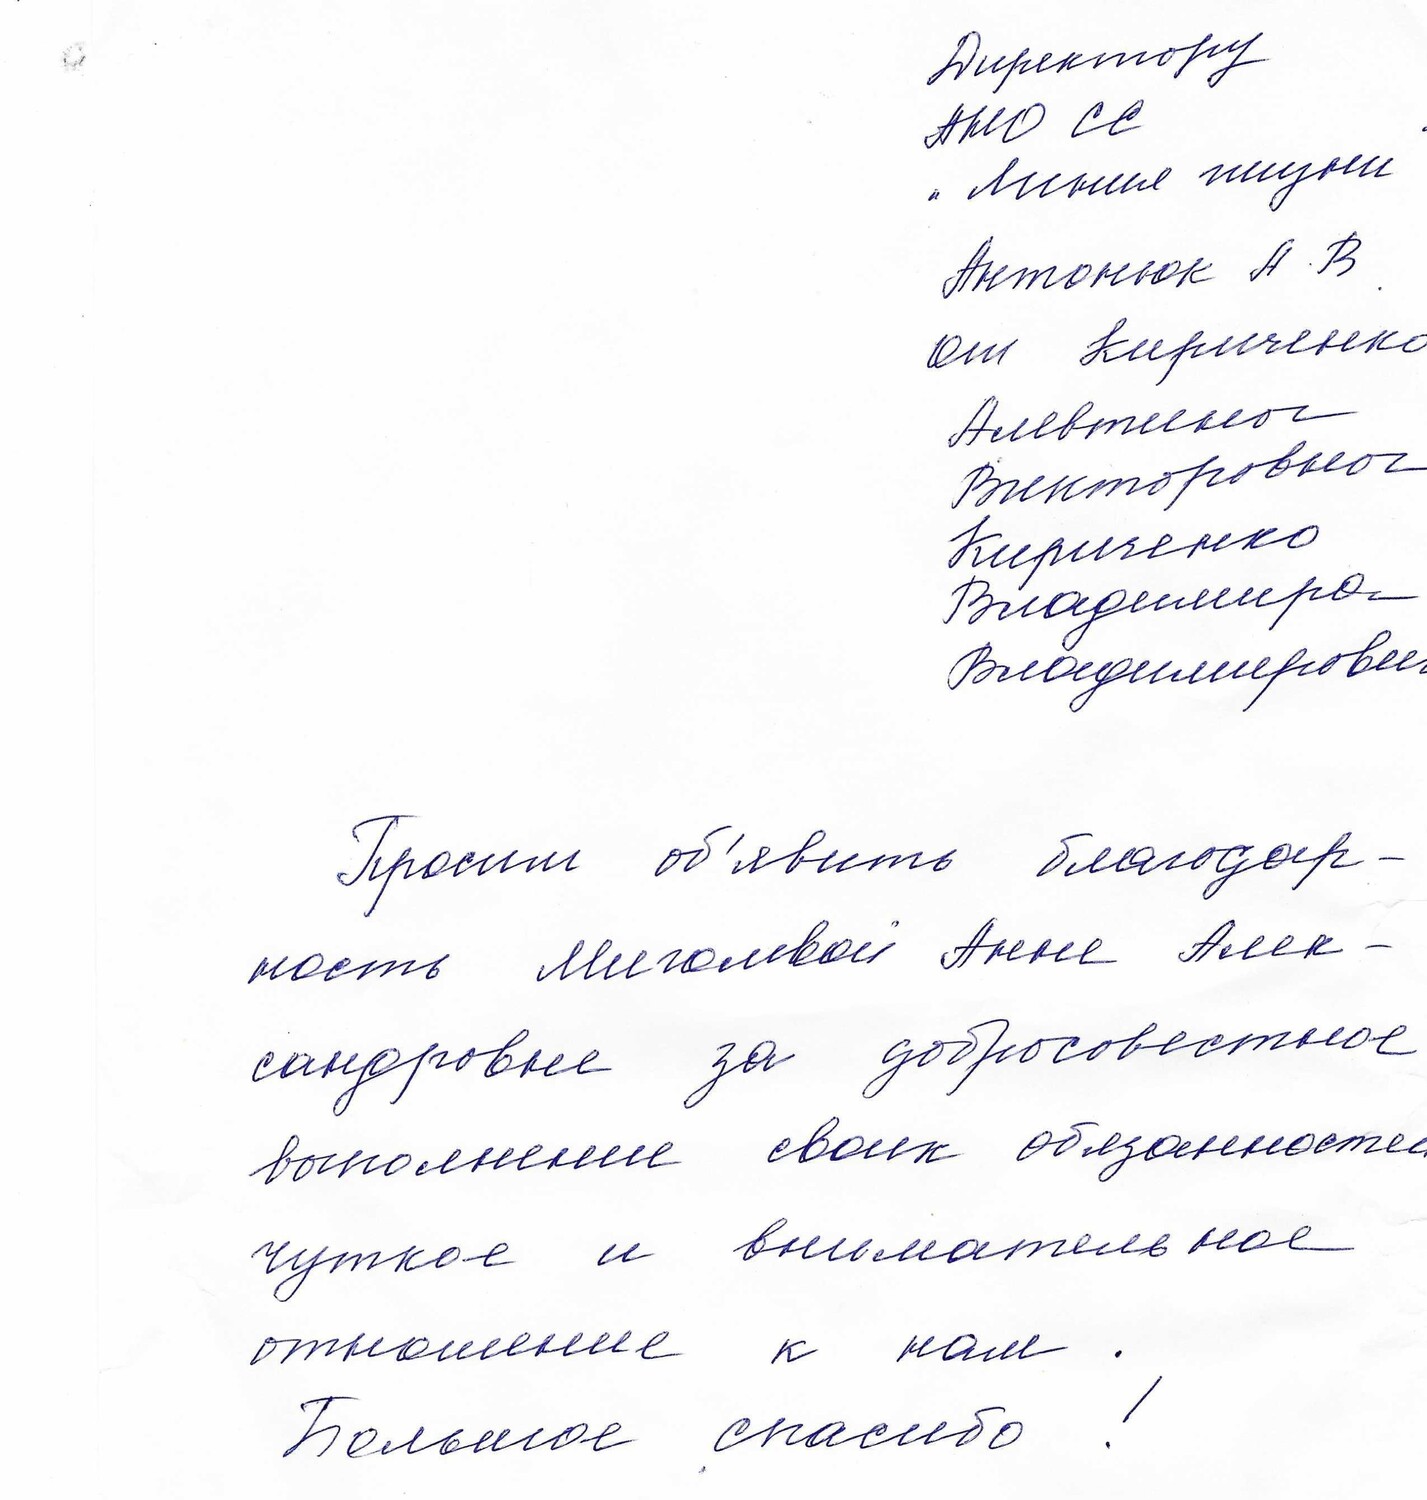 Директору
АНО СС
„Линия жизни
Антонюк А.В.
от Кириченко
Алевтиной
Викторовной
Кириченко
Владимира
Владимирович
Просим об'явить благодар-
ность Анне Алек-
сандровне за добросовестное
выполнение своих обязанностей
чуткое и внимательное
отношение к нам.
Большое спасибо!